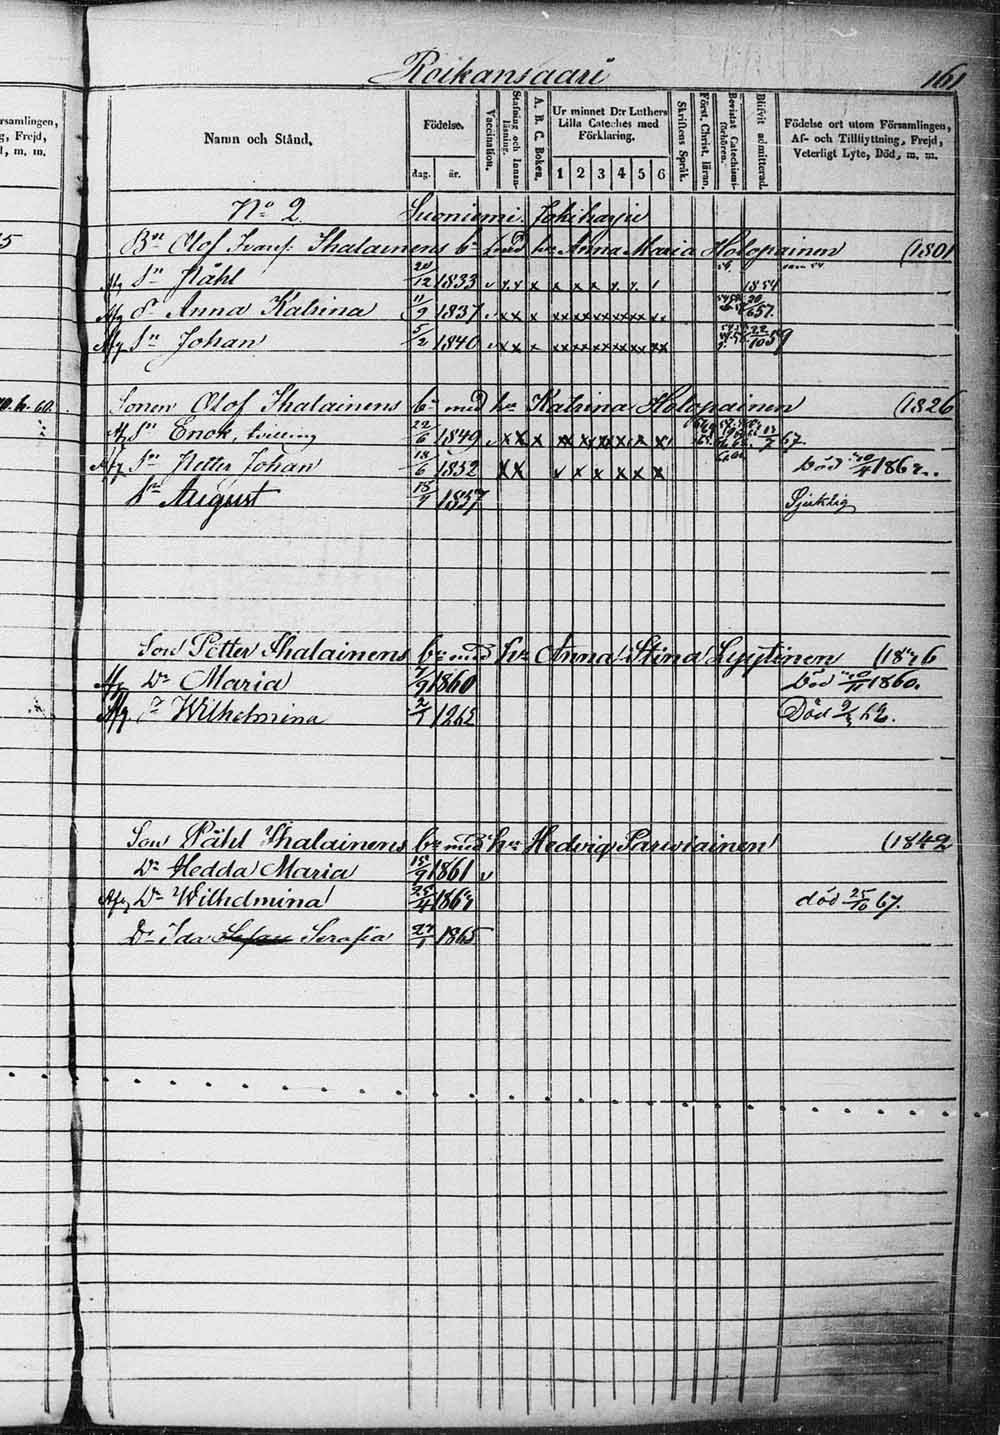 Roikansaari 161
rsamlingen,
g, Frejd,
l, m. m.
Namn och Stånd.
Födelse.
dag. år.
Vaccination.
Stafning och Innanläsning.
A. B. C. Boken.
Ur minnet D:r Luthers
Lilla Cateches med
Förklaring.
1 2 3 4 5 6
Skriftens Språk.
Först. Christ. läran.
Bevistat Catechismiförhören.
Blifvit admitterad.
Födelse ort utom Församlingen,
Af- och Tillflyttning, Frejd,
Veterligt Lyte, Död, m. m.
No 2. Suoniemi.
Bn Olof Ihalainens bn med hu Anna Maria Holopainen (1801
Sn Påhl 20/12 1833 v x x x x x x 1854
Dr Anna Katrina 11/9 1837 v xx x xx xx xx xx xx 57.
Sn Johan 5/2 1840 v xx x xx xx xx xx xx xx 22/10 59
Sonen Olof Ihalainens bn med hu Katrina Holopainen (1826
Sn Enok, tvilling 22/6 1849 v xx x 67.
Sn Petter Johan 18/6 1852 xx v x x x x x Död 1862.
Sn August 15/9 1857 Sjuklig
Son Petter Ihalainens bn med hu Anna Stina Lyytinen (18
Dr Maria 1860 Död 1860.
Dr Wilhelmina 1262 Död 62.
Son Påhl Ihalainens bn med hu Hedvig Parwiainen (1842
Dr Hedda Maria 1861 v
Dr Wilhelmina 25/4 186 död 25/10 67.
Dr Ida Serafia 1865